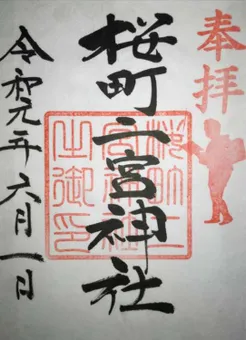 奉拝
桜町二宮神社
令和元年六月一日